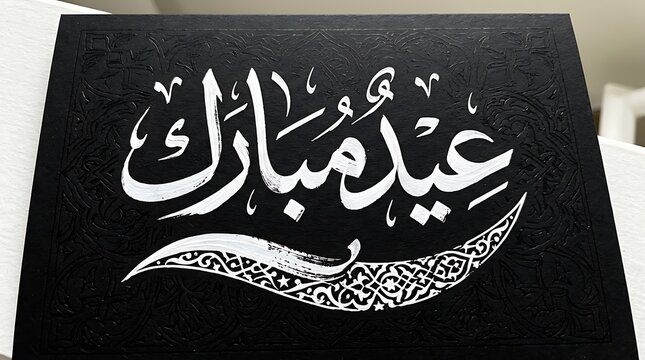 عِيدُ مُبَارَك